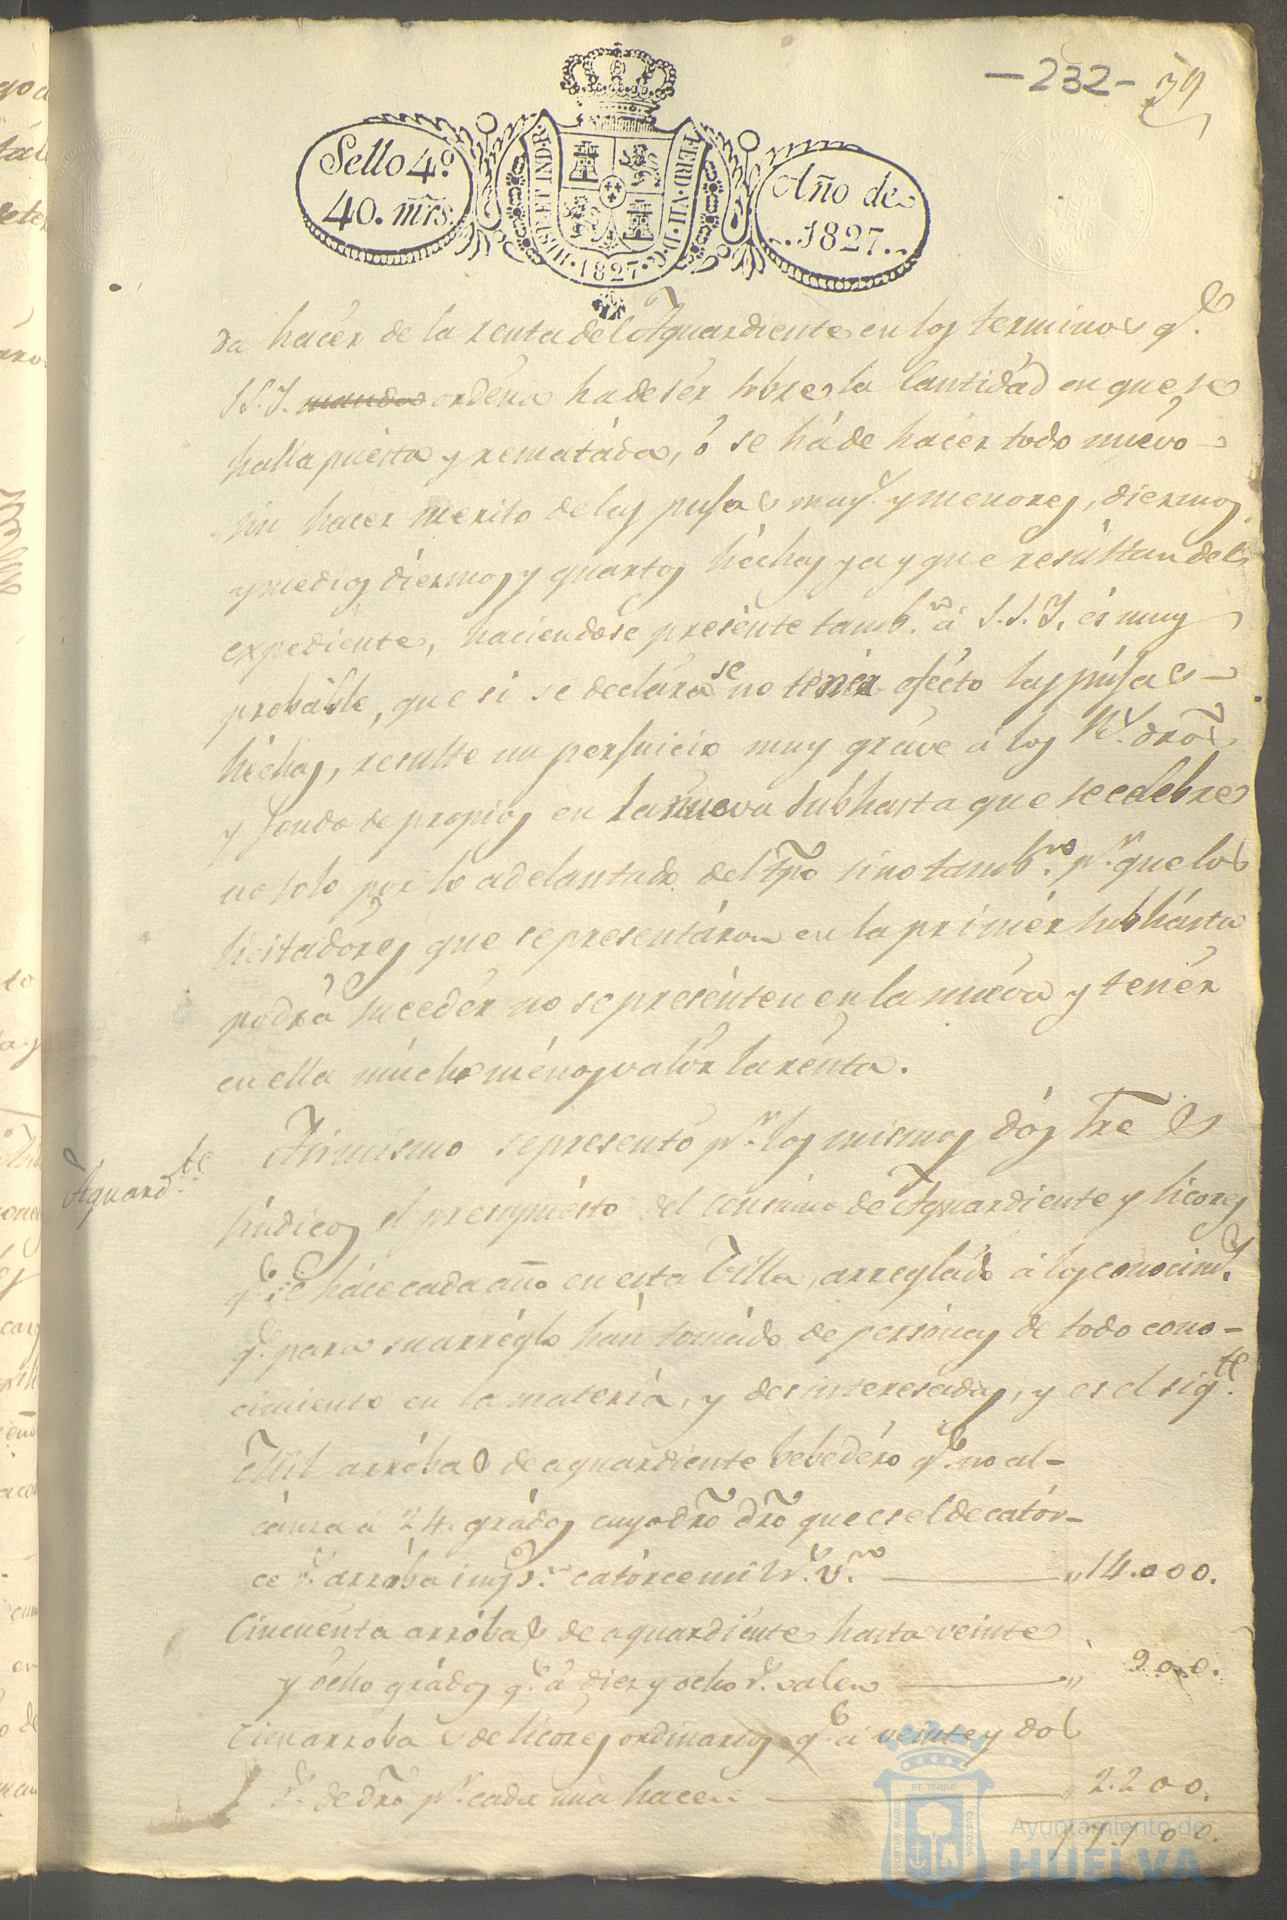 -232- 39
Sello 4º
40. mrs.
HISP. ET IND. R. FERD. VII. D. G. 1827
Año de
1827.
da hacér de la renta del Aguardiente en los terminos q.e
S.S.Y. mandas ordéna ha de sér sobre la Cantidád en que se
halla puésta y rematáda, ó se há de hacér todo nuévo
sin hacer merito de las pujas may.s y menores, diezmos
y medios diezmos y quartos héchas ya y que resúltan del
expediente, haciendose presénte tamb.n á S.S.Y. és muy
probáble, que si se declárase no tenér efécto las pújas
héchas, resulte un perjuicio muy gráve á los R.s dros
y fondo de propios en la nueva subhasta que se celébre
no solo por lo adelantado del tpo sino tamb.n p.r que los
licitadóres que se presentáron en la primér subhásta
podrá sucedér no se presénten en la nuéva y tenér
en ella múcho ménos valór la rénta.
Aguard.te
Asimismo se presentó p.r los mismos dós Sres
Síndicos el presupuésto del consúmo de Aguardiente y licores
q.e se háce cada año en esta Villa, arreglado á los conocim.s
q.e para su arréglo hán tomádo de persónas de todo cono-
cimiento en la matéria, y desinteresadas, y es el sig.te
Mil arróbas de aguardiente bebedéro q.e no al-
cánza á 24. grádos cuyo dro dro que es el de catór-
ce r.s arróba imp.n catórce mil r.s v.n " 14.000.
Cincuénta arróbas de aguardiénte hasta veinte
y ócho grádos q.e á diez y ocho r.s valen " 900.
Cien arrobas de licores ordinarios q.e á véinte y dos
r.s de dro p.r cada una hacen " 2.200.
17.100.
PORTUS MARIS ET TERRAE CUSTODIA
Ayuntamiento de
HUELVA